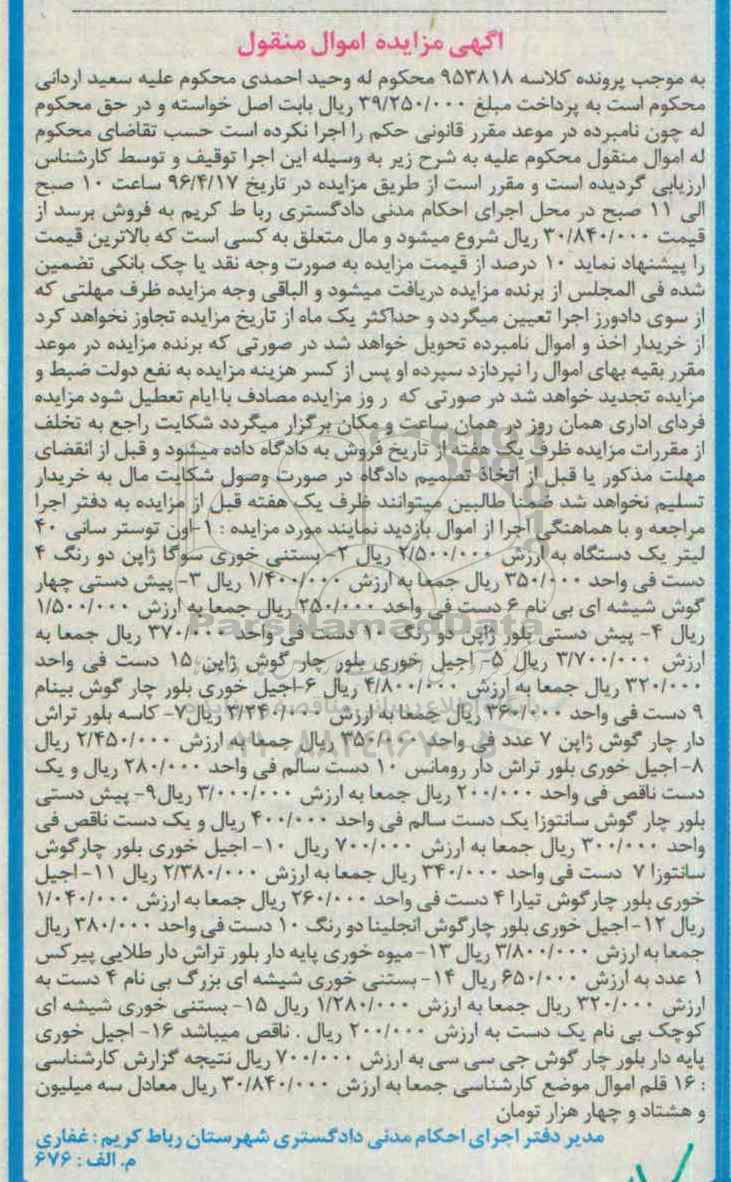 آگهی مزایده اموال منقول
به موجب پرونده کلاسه ۹۵۳۸۱۸ محکوم له وحید احمدی محکوم علیه سعید اردانی
محکوم است به پرداخت مبلغ ۳۹/۲۵۰/۰۰۰ ریال بابت اصل خواسته و در حق محکوم
له چون نامبرده در موعد مقرر قانونی حکم را اجرا نکرده است حسب تقاضای محکوم
له اموال منقول محکوم علیه به شرح زیر به وسیله این اجرا توقیف و توسط کارشناس
ارزیابی گردیده است و مقرر است از طریق مزایده در تاریخ ۹۶/۴/۱۷ ساعت ۱۰ صبح
الی ۱۱ صبح در محل اجرای احکام مدنی دادگستری ربا ط کریم به فروش برسد از
قیمت ۳۰/۸۴۰/۰۰۰ ریال شروع میشود و مال متعلق به کسی است که بالاترین قیمت
را پیشنهاد نماید ۱۰ درصد از قیمت مزایده به صورت وجه نقد یا چک بانکی تضمین
شده فی المجلس از برنده مزایده دریافت میشود و الباقی وجه مزایده ظرف مهلتی که
از سوی دادورز اجرا تعیین میگردد و حداکثر یک ماه از تاریخ مزایده تجاوز نخواهد کرد
از خریدار اخذ و اموال نامبرده تحویل خواهد شد در صورتی که برنده مزایده در موعد
مقرر بقیه بهای اموال را نپردازد سپرده او پس از کسر هزینه مزایده به نفع دولت ضبط و
مزایده تجدید خواهد شد در صورتی که ر وز مزایده مصادف با ایام تعطیل شود مزایده
فردای اداری همان روز در همان ساعت و مکان برگزار میگردد شکایت راجع به تخلف
از مقررات مزایده ظرف یک هفته از تاریخ فروش به دادگاه داده میشود و قبل از انقضای
مهلت مذکور یا قبل از اتخاذ تصمیم دادگاه در صورت وصول شکایت مال به خریدار
تسلیم نخواهد شد ضمنا طالبین میتوانند ظرف یک هفته قبل از مزایده به دفتر اجرا
مراجعه و با هماهنگی اجرا از اموال بازدید نمایند مورد مزایده : ۱-اون توستر سانی ۴۰
لیتر یک دستگاه به ارزش ۲/۵۰۰/۰۰۰ ریال ۲- بستنی خوری سوگا ژاپن دو رنگ ۴
دست فی واحد ۳۵۰/۰۰۰ ریال جمعا به ارزش ۱/۴۰۰/۰۰۰ ریال ۳- پیش دستی چهار
گوش شیشه ای بی نام ۶ دست فی واحد ۲۵۰/۰۰۰ ریال جمعا به ارزش ۱/۵۰۰/۰۰۰
ریال ۴- پیش دستی بلور ژاپن دو رنگ ۱۰ دست فی واحد ۳۷۰/۰۰۰ ریال جمعا به
ارزش ۳/۷۰۰/۰۰۰ ریال ۵- اجیل خوری بلور چار گوش ژاپن ۱۵ دست فی واحد
۳۲۰/۰۰۰ ریال جمعا به ارزش ۴/۸۰۰/۰۰۰ ریال ۶-اجیل خوری بلور چار گوش بینام
۹ دست فی واحد ۳۶۰/۰۰۰ ریال جمعا به ارزش ۳/۲۴۰/۰۰۰ ریال۷- کاسه بلور تراش
دار چار گوش ژاپن ۷ عدد فی واحد ۳۵۰/۰۰۰ ریال جمعا به ارزش ۲/۴۵۰/۰۰۰ ریال
۸- اجیل خوری بلور تراش دار رومانس ۱۰ دست سالم فی واحد ۲۸۰/۰۰۰ ریال و یک
دست ناقص فی واحد ۲۰۰/۰۰۰ ریال جمعا به ارزش ۳/۰۰۰/۰۰۰ ریال۹- پیش دستی
بلور چار گوش سانتوزا یک دست سالم فی واحد ۴۰۰/۰۰۰ ریال و یک دست ناقص فی
واحد ۳۰۰/۰۰۰ ریال جمعا به ارزش ۷۰۰/۰۰۰ ریال ۱۰- اجیل خوری بلور چارگوش
سانتوزا ۷ دست فی واحد ۳۴۰/۰۰۰ ریال جمعا به ارزش ۲/۳۸۰/۰۰۰ ریال ۱۱- اجیل
خوری بلور چارگوش تیارا ۴ دست فی واحد ۲۶۰/۰۰۰ ریال جمعا به ارزش ۱/۰۴۰/۰۰۰
ریال ۱۲- اجیل خوری بلور چارگوش انجلینا دو رنگ ۱۰ دست فی واحد ۳۸۰/۰۰۰ ریال
جمعا به ارزش ۳/۸۰۰/۰۰۰ ریال ۱۳- میوه خوری پایه دار بلور تراش دار طلایی پیرکس
۱ عدد به ارزش ۶۵۰/۰۰۰ ریال ۱۴- بستنی خوری شیشه ای بزرگ بی نام ۴ دست به
ارزش ۳۲۰/۰۰۰ ریال جمعا به ارزش ۱/۲۸۰/۰۰۰ ریال ۱۵- بستنی خوری شیشه ای
کوچک بی نام یک دست به ارزش ۲۰۰/۰۰۰ ریال . ناقص میباشد ۱۶- اجیل خوری
پایه دار بلور چار گوش جی سی سی به ارزش ۷۰۰/۰۰۰ ریال نتیجه گزارش کارشناسی
: ۱۶ قلم اموال موضع کارشناسی جمعا به ارزش ۳۰/۸۴۰/۰۰۰ ریال معادل سه میلیون
و هشتاد و چهار هزار تومان
مدیر دفتر اجرای احکام مدنی دادگستری شهرستان رباط کریم : غفاری
م. الف : ۶۷۶
ParsNamadData